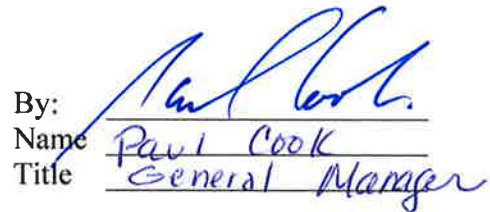 By: Paul Cook
Name Paul Cook
Title General Manager